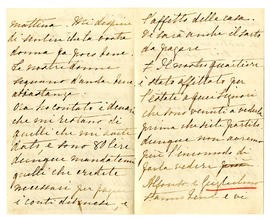 mattina. Mi dispiace
di sentire che la vostra
donna fa poco bene.
Le nostre donne
seguono andar bene
abbastanza.
Ora ho contato i denari
che mi restano di
quelli che mi avete
dato, e sono 80 lire
dunque mandatemi
quelli che credete
necessari per pagare
i conti di casa, e
l'affitto della casa.
Vi sarà anche il sarto
da pagare.
Il nostro quartiere
è stato affittato per
l'estate a quei Signori
che sono venuti a vederlo
prima che siete partito
dunque non avremo
più l'incomodo di
farlo vedere
Alfonso e Guglielmo
stanno bene e ve